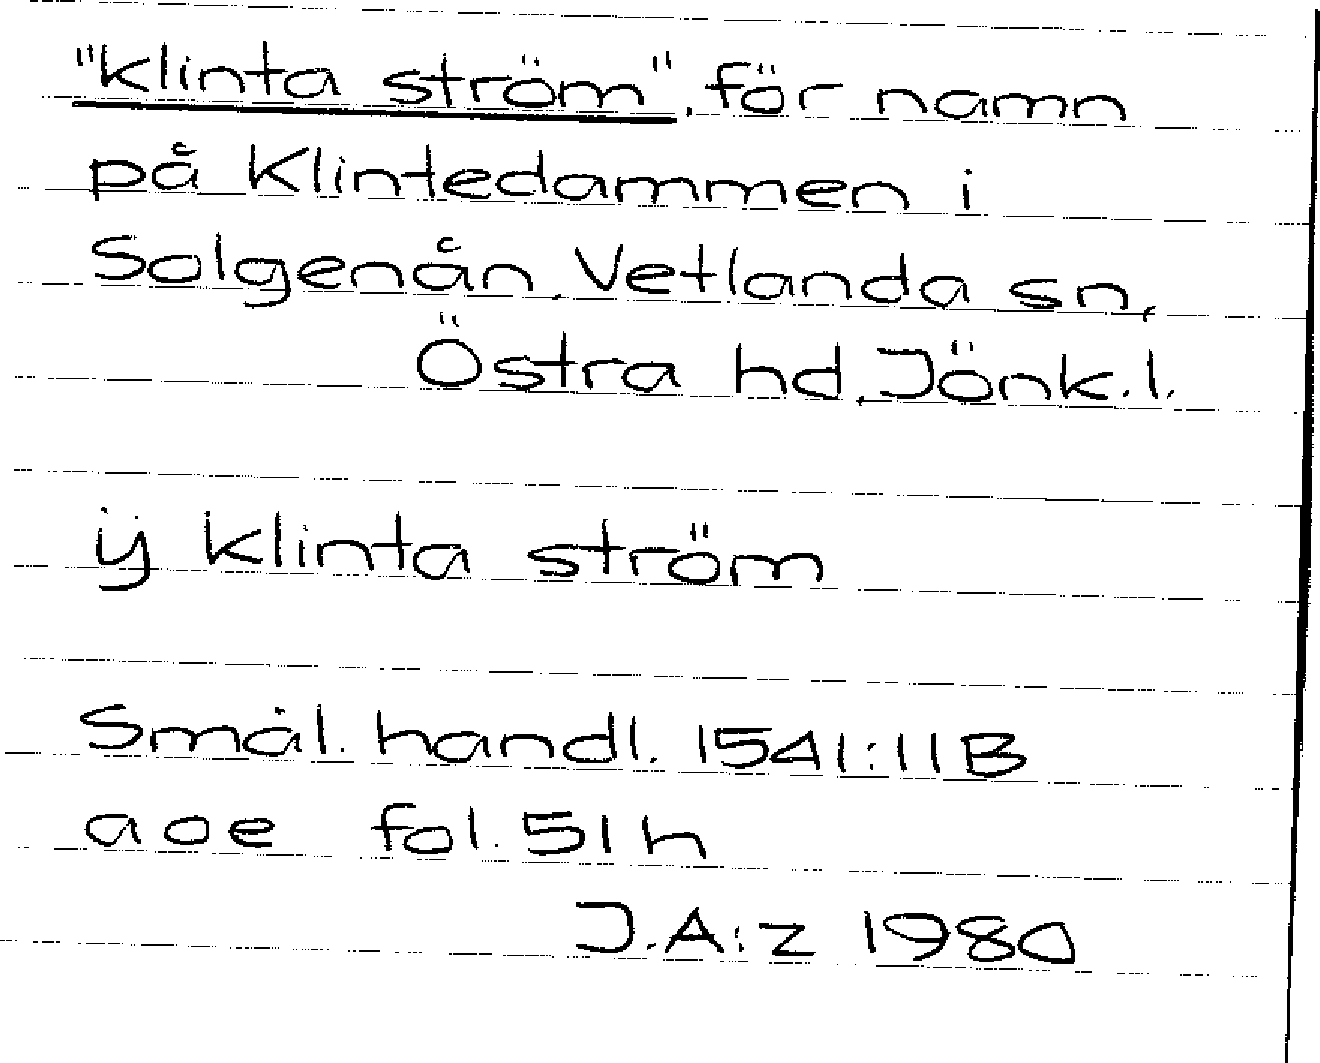 "klinta ström", för namn
på Klintedammen i
Solgenån, Vetlanda sn,
Östra hd, Jönk.l.
ij klinta ström
Smål. handl. 1541:11B
aoe fol. 51 h
J.A:z 1980